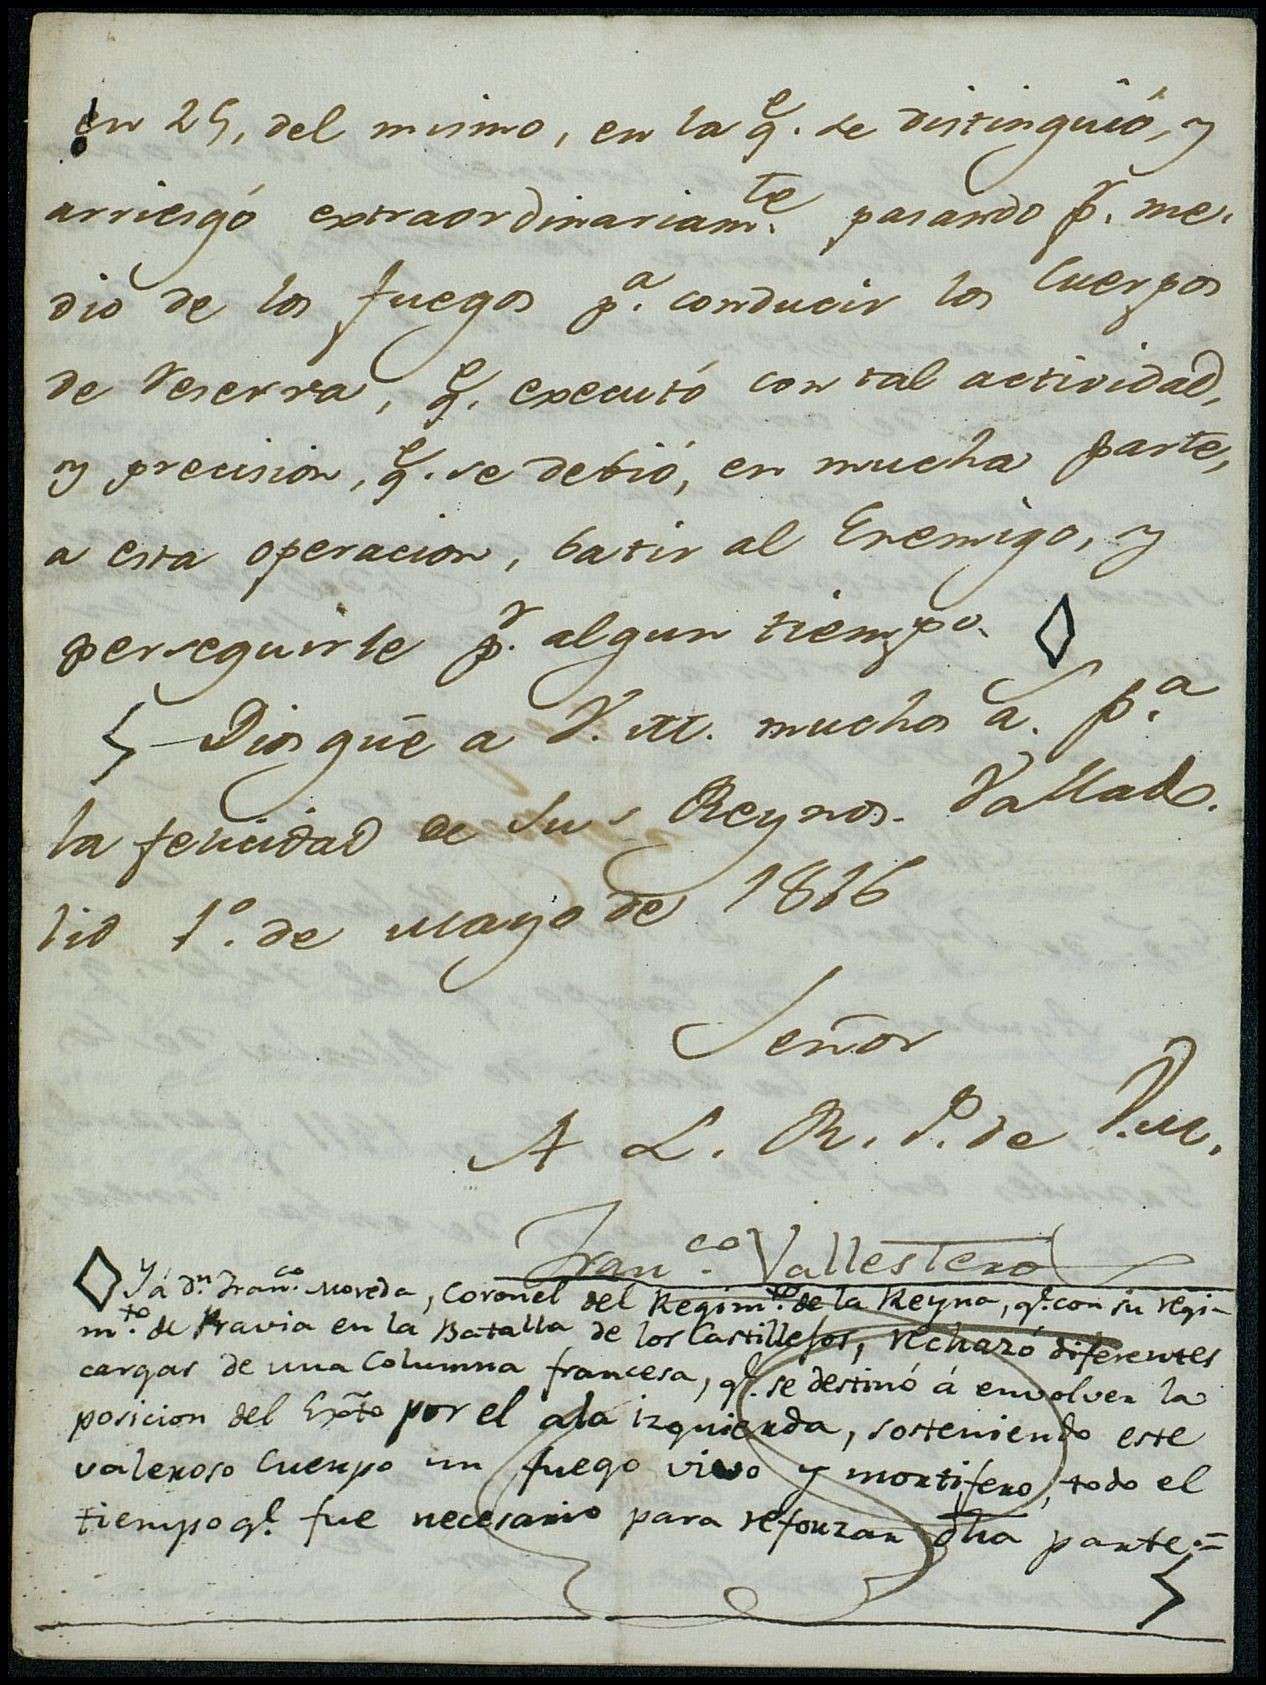 en 25, del mismo, en la q.e se distinguió, y
arriesgó extraordinariam.te pasando p.r me-
dio de los fuegos p.a conducir los Cuerpos
de reserva, q.e executó con tal actividad,
y precision, q.e se debió, en mucha parte,
a esta operacion, batir al Enemigo, y
perseguirle p.r algun tiempo. ◊
Dios gue a V. M. muchos a.s p.a
la felicidad de sus Reynos. Vallado-
lid 1.o de Mayo de 1816
Señor
A L. R. P. de V. M.
Fran.co Vallesteros
◊ Y á D.n Fran.co Moreda, Coronel del Regim.to de la Reyna, q.e con su regi-
m.to de Pravia en la Batalla de los Castillejos, rechazó diferentes
cargas de una Columna francesa, q.e se destinó á envolver la
posicion del Exto por el ala izquierda, sosteniendo este
valeroso Cuerpo un fuego vivo y mortifero, todo el
tiempo q.e fue necesario para reforzar dha parte.=